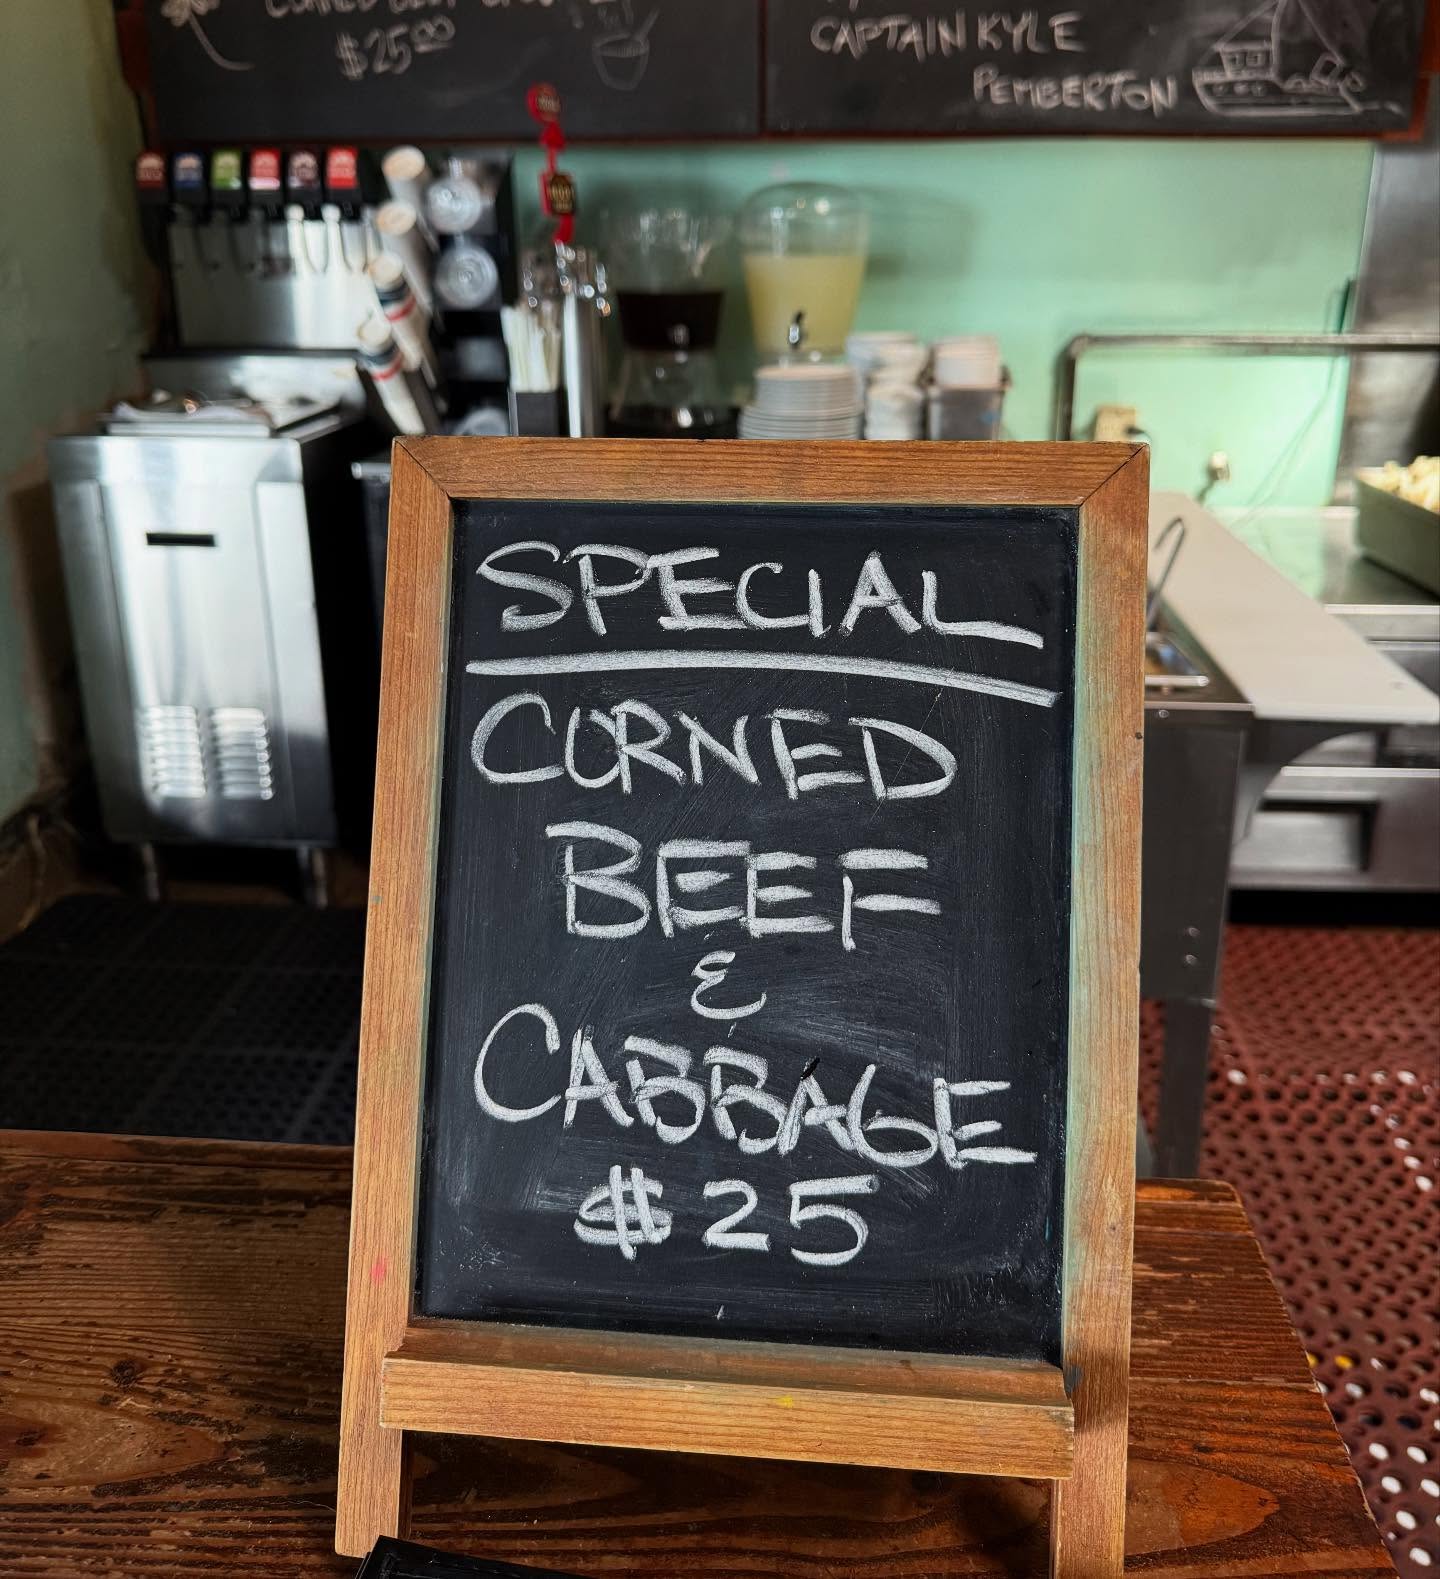 $25.00
CAPTAIN KYLE
PEMBERTON
SPECIAL
CORNED
BEEF
&
CABBAGE
$25